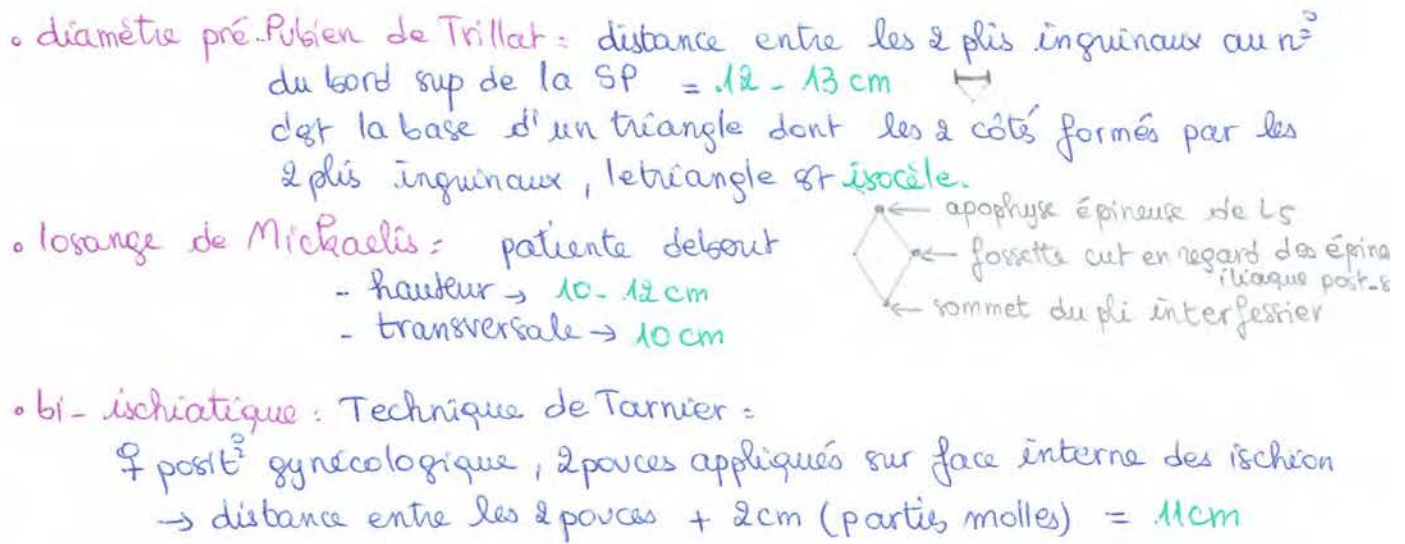 • diamètre pré-Pubien de Trillat : distance entre les 2 plis inguinaux au nº
du bord sup de la SP = 12 - 13 cm
c'est la base d'un triangle dont les 2 côté formés par les
2 plis inguinaux, le triangle est isocèle.
• losange de Mickaelis : patiente debout
- hauteur → 10 - 12 cm
- transversale → 10 cm
← apophyse épineuse de L5
← fossette cut en regard des épine
iliaque post-s
← sommet du pli interfessier
• bi-ischiatique : Technique de Tarnier :
♀ positº gynécologique, 2 pouces appliqués sur face interne des ischion
→ distance entre les 2 pouces + 2cm (parties molles) = 11cm